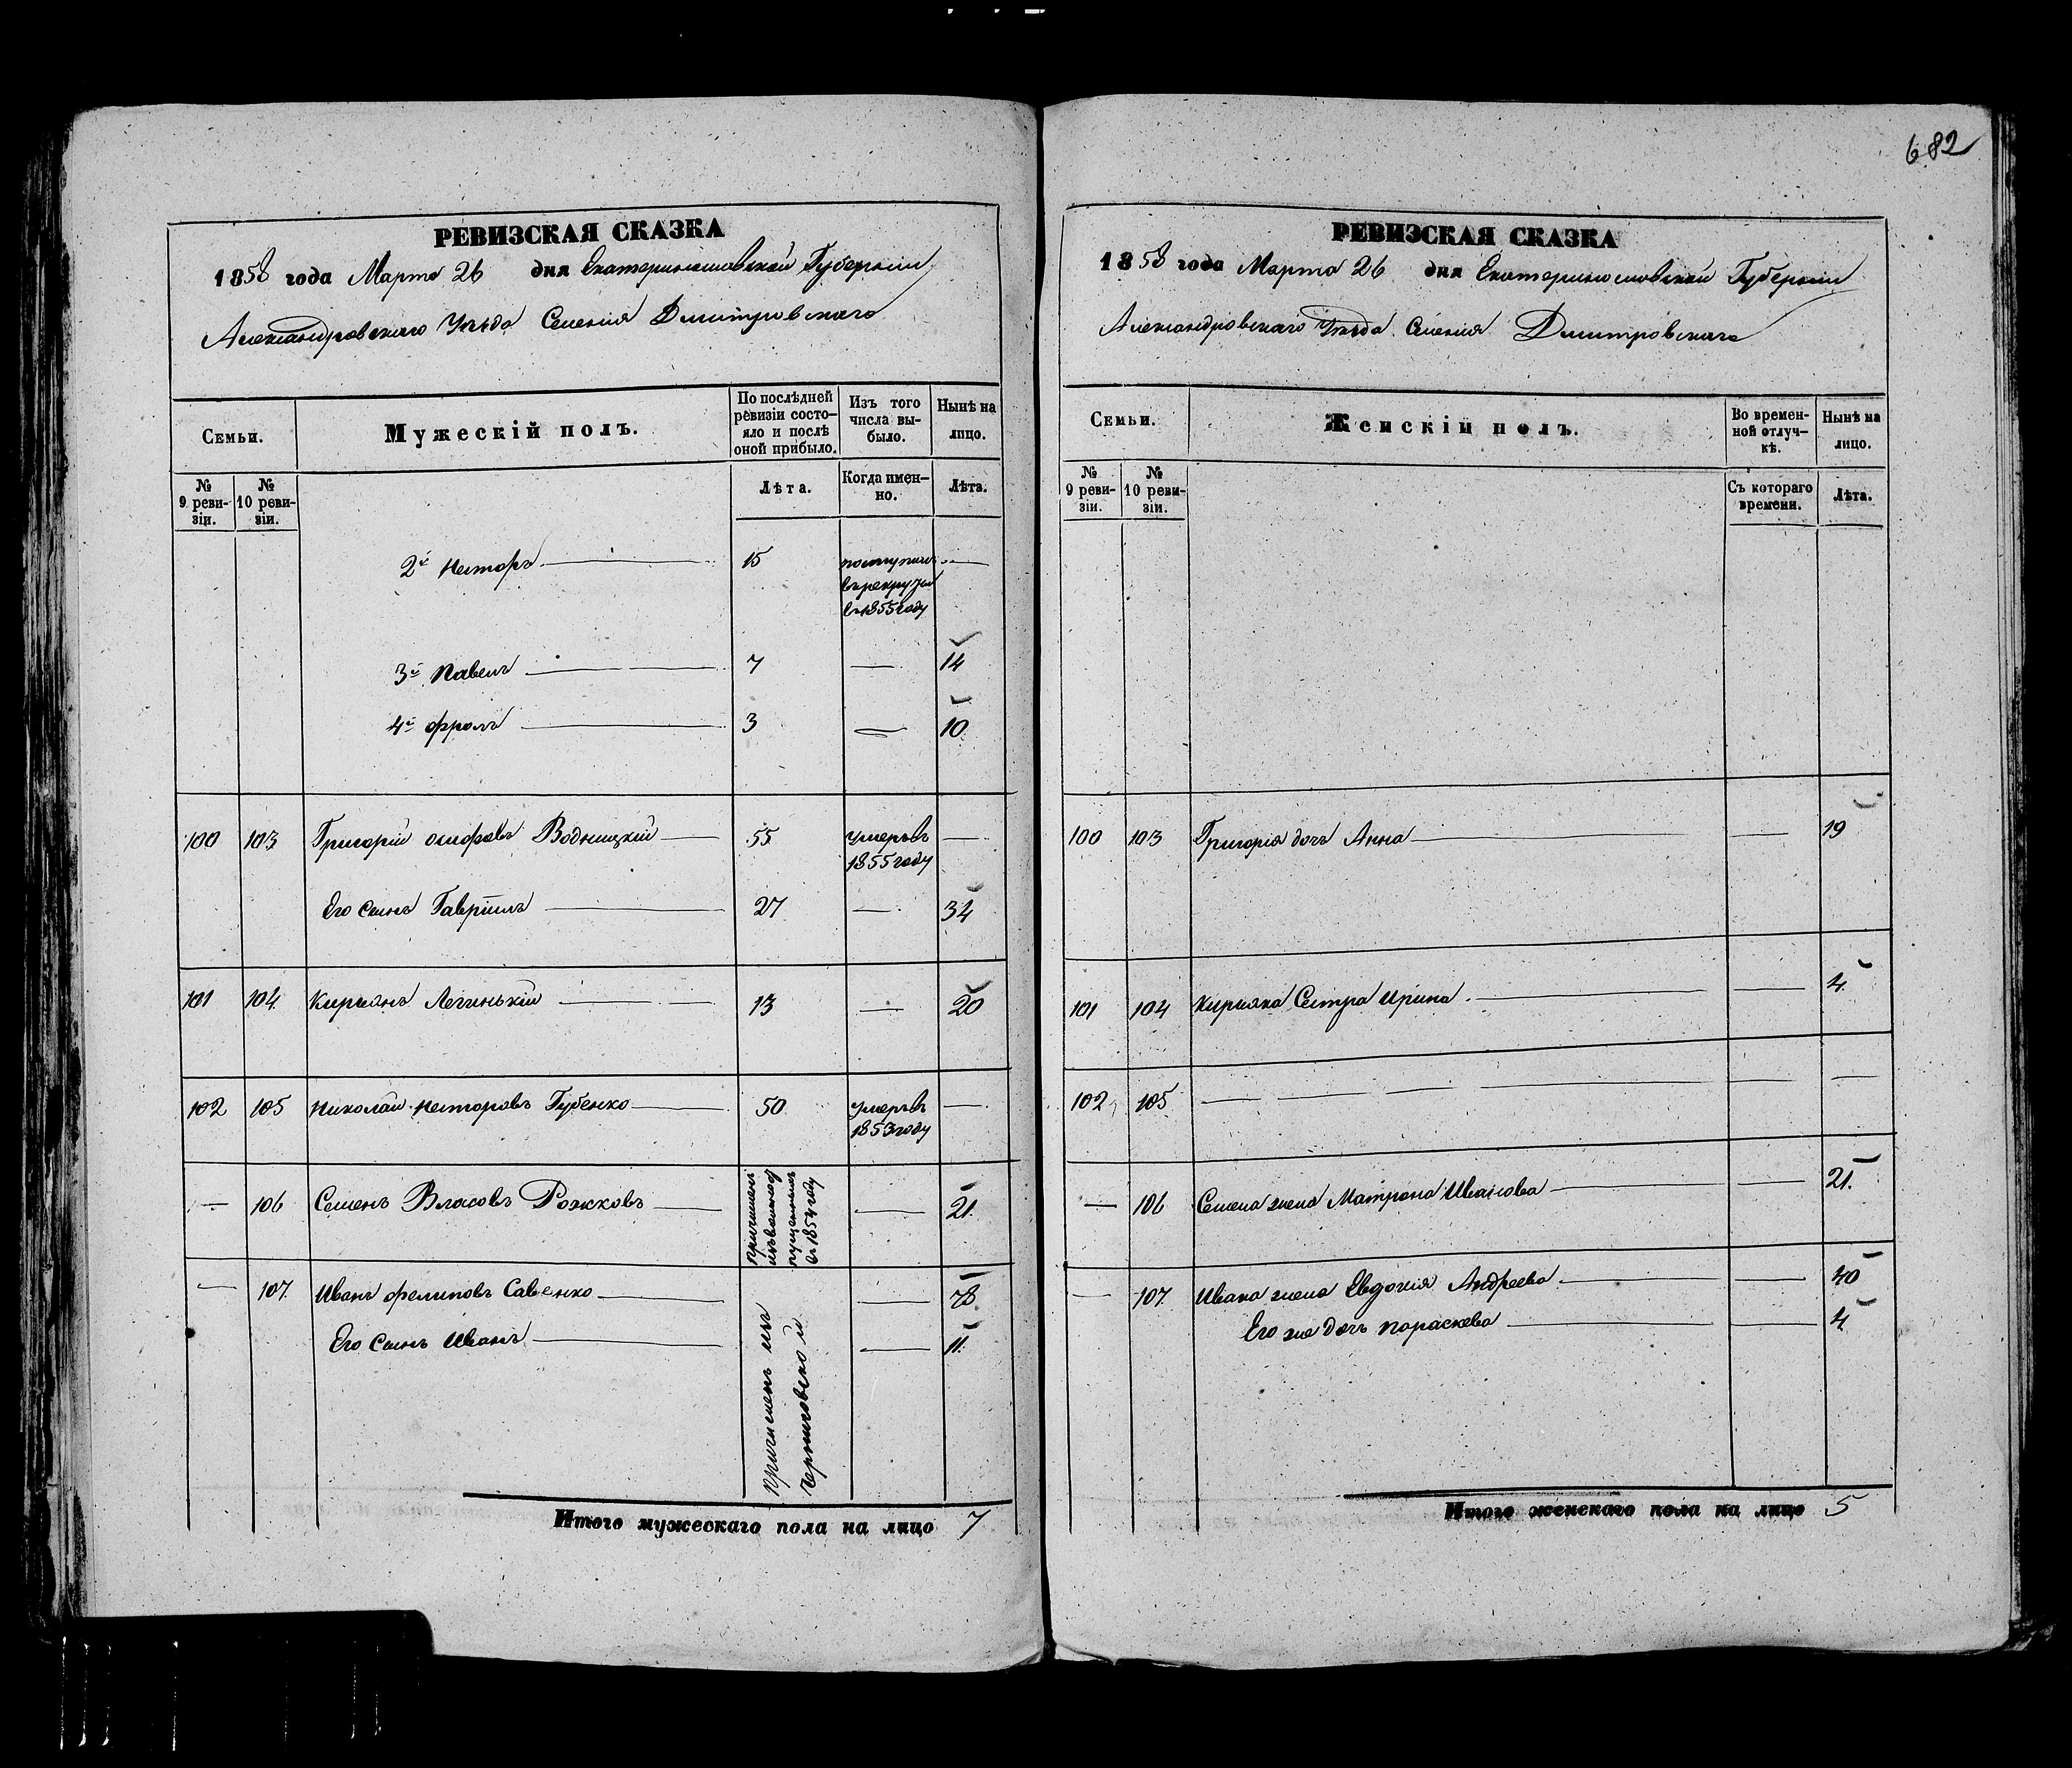 682
РЕВИЗСКАЯ СКАЗКА
1858 года Марта 26 дня Екатеринославской Губерніи
Александровскаго Уѣзда Селенія Дмитровскаго
Семьи.
Мужескій полъ.
По послѣдней ревизіи состо-
яло и послѣ
оной прибыло.
Изъ того
числа вы-
было.
Нынѣ на
лицо.
№
9 реви-
зіи.
№
10 реви-
зіи.
Лѣта.
Когда имен-
но.
Лѣта.
2й Несторъ 15 поступилъ —
в рекруты
в 1855 году
3й Павелъ 7 — 14
4й Фролъ 3 — 10
100 103 Григорій Осифовъ Водницкій 55 умеръ в —
1855 году
Его Сынъ Гавріилъ 27 — 34
101 104 Кирьянъ Легинькій 13 — 20
102 105 Николай Несторовъ Губенко 50 умеръ в —
1853 году
— 106 Семенъ Власовъ Рожковъ — 21
причисленъ
изъ вольноот
пущенныхъ
в 1854 году
— 107 Иванъ Фелиповъ Савенко — 78
Его Сынъ Иванъ — 11
причисленъ изъ
Черниговской
Итого мужескаго пола на лицо 7
РЕВИЗСКАЯ СКАЗКА
1858 года Марта 26 дня Екатеринославской Губерніи
Александровскаго Уѣзда Селенія Дмитровскаго
Семьи.
Женскій полъ.
Во времен-
ной отлуч-
кѣ.
Нынѣ на
лицо.
№
9 реви-
зіи.
№
10 реви-
зіи.
Съ котораго
времени.
Лѣта.
100 103 Григорія дочь Анна — 19
101 104 Кирьяна Сестра Ирина — 4
102 105 — — — —
— 106 Семена жена Матрона Иванова — 21
— 107 Ивана жена Евдокия Андреева — 40
Его же дочь Параскева — 4
Итого женскаго пола на лицо 5